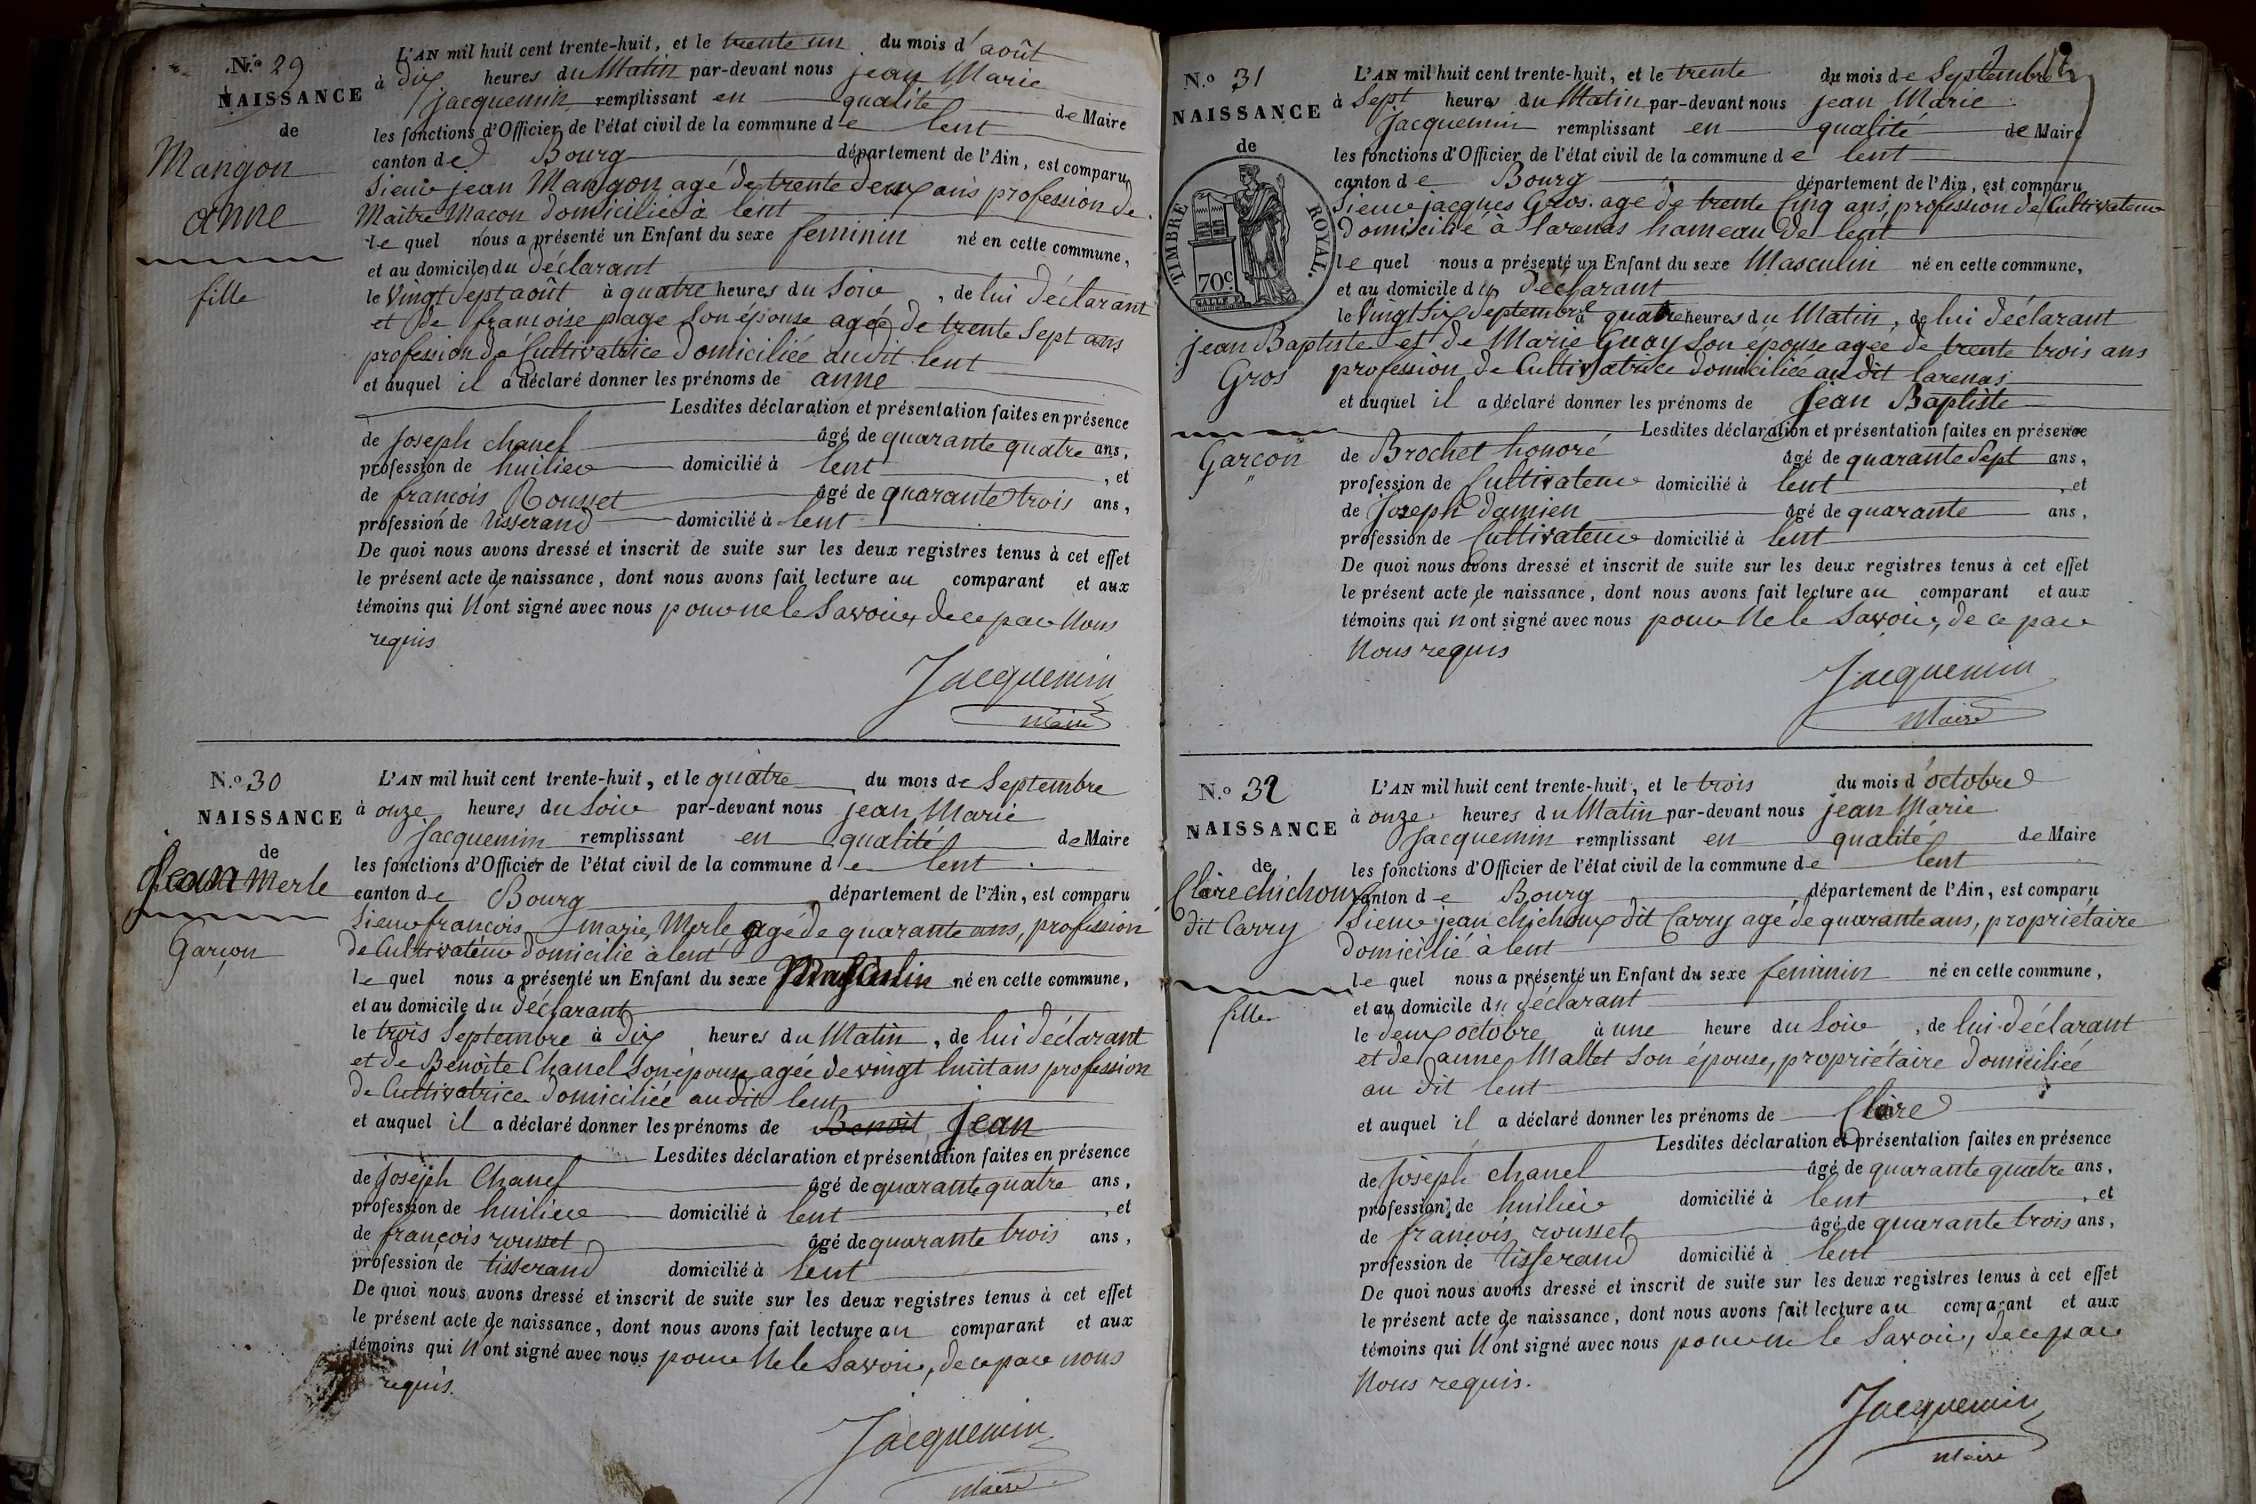 N.o 29
NAISSANCE
de
Mangon
anne
fille
L'AN mil huit cent trente-huit, et le trente un du mois d'août
à dix heures du Matin par-devant nous jean Marie
Jacquemin remplissant en qualité de Maire
les fonctions d'Officier de l'état civil de la commune de lent
canton de Bourg département de l'Ain, est comparu
Sieur jean Mangon agé de trente deux ans profession de
Maitre Macon domicilié à lent
le quel nous a présenté un Enfant du sexe feminin né en cette commune,
et au domicile du déclarant
le Vingt Sept août à quatre heures du Soir, de lui déclarant
et de françoise page Son épouse agée de trente Sept ans
profession de Cultivatrice domiciliée au dit lent
et auquel il a déclaré donner les prénoms de anne
Lesdites déclaration et présentation faites en présence
de Joseph Chanel âgé de quarante quatre ans,
profession de huilier domicilié à lent, et
de françois Rousset âgé de quarante trois ans,
profession de tisserand domicilié à lent
De quoi nous avons dressé et inscrit de suite sur les deux registres tenus à cet effet
le présent acte de naissance, dont nous avons fait lecture au comparant et aux
témoins qui N'ont signé avec nous pour ne le Savoir, de ce par Nous
requis
Jacquemin
Maire
N.o 30
NAISSANCE
de
Jean Merle
Garçon
L'AN mil huit cent trente-huit, et le quatre du mois de Septembre
à onze heures du Soir par-devant nous jean Marie
Jacquemin remplissant en qualité de Maire
les fonctions d'Officier de l'état civil de la commune de lent
canton de Bourg département de l'Ain, est comparu
Sieur françois marie Merle agé de quarante ans, profession
de Cultivateur domicilié à lent
le quel nous a présenté un Enfant du sexe Masculin né en cette commune,
et au domicile du déclarant
le trois Septembre à dix heures du Matin, de lui déclarant
et de Benoite Chanel Son épouse agée de vingt huit ans profession
de Cultivatrice domiciliée au dit lent
et auquel il a déclaré donner les prénoms de Benoit Jean
Lesdites déclaration et présentation faites en présence
de Joseph Chanel âgé de quarante quatre ans,
profession de huilier domicilié à lent, et
de françois rousset âgé de quarante trois ans,
profession de tisserand domicilié à lent
De quoi nous avons dressé et inscrit de suite sur les deux registres tenus à cet effet
le présent acte de naissance, dont nous avons fait lecture au comparant et aux
témoins qui N'ont signé avec nous pour Ne le Savoir, de ce par nous
requis.
Jacquemin
Maire
N.o 31
NAISSANCE
de
TIMBRE ROYAL.
70c
jean Baptiste
Gros
Garçon
L'AN mil huit cent trente-huit, et le trente du mois de Septembre
à Sept heures du Matin par-devant nous jean Marie
Jacquemin remplissant en qualité de Maire
les fonctions d'Officier de l'état civil de la commune de lent
canton de Bourg département de l'Ain, est comparu
Sieur jacques Gros. agé de trente Cinq ans, profession de Cultivateur
domicilié à Larenas hameau de lent
le quel nous a présenté un Enfant du sexe Masculin né en cette commune,
et au domicile du déclarant
le Vingt Six Septembre à quatre heures du Matin, de lui déclarant
et de Marie Guay Son épouse agée de trente trois ans
profession de Cultivatrice domiciliée au dit Larenas
et auquel il a déclaré donner les prénoms de Jean Baptiste
Lesdites déclaration et présentation faites en présence
de Brochet honoré âgé de quarante Sept ans,
profession de Cultivateur domicilié à lent, et
de Joseph damien âgé de quarante ans,
profession de Cultivateur domicilié à lent
De quoi nous avons dressé et inscrit de suite sur les deux registres tenus à cet effet
le présent acte de naissance, dont nous avons fait lecture au comparant et aux
témoins qui n'ont signé avec nous pour Ne le Savoir, de ce par
Nous requis
Jacquemin
Maire
N.o 32
NAISSANCE
de
Claire chichoux
dit Carry
fille
L'AN mil huit cent trente-huit, et le trois du mois d'octobre
à onze heures du Matin par-devant nous jean Marie
Jacquemin remplissant en qualité de Maire
les fonctions d'Officier de l'état civil de la commune de lent
canton de Bourg département de l'Ain, est comparu
Sieur jean chichoux dit Carry agé de quarante ans, propriétaire
domicilié à lent
le quel nous a présenté un Enfant du sexe feminin né en cette commune,
et au domicile du déclarant
le deux octobre à une heure du Soir, de lui déclarant
et de anne Mallet Son épouse, propriétaire domiciliée
au dit lent
et auquel il a déclaré donner les prénoms de Claire
Lesdites déclaration et présentation faites en présence
de Joseph chanel âgé de quarante quatre ans,
profession de huilier domicilié à lent, et
de françois rousset âgé de quarante trois ans,
profession de tisserand domicilié à lent
De quoi nous avons dressé et inscrit de suite sur les deux registres tenus à cet effet
le présent acte de naissance, dont nous avons fait lecture au comparant et aux
témoins qui N'ont signé avec nous pour ne le Savoir, de ce par
Nous requis.
Jacquemin
Maire